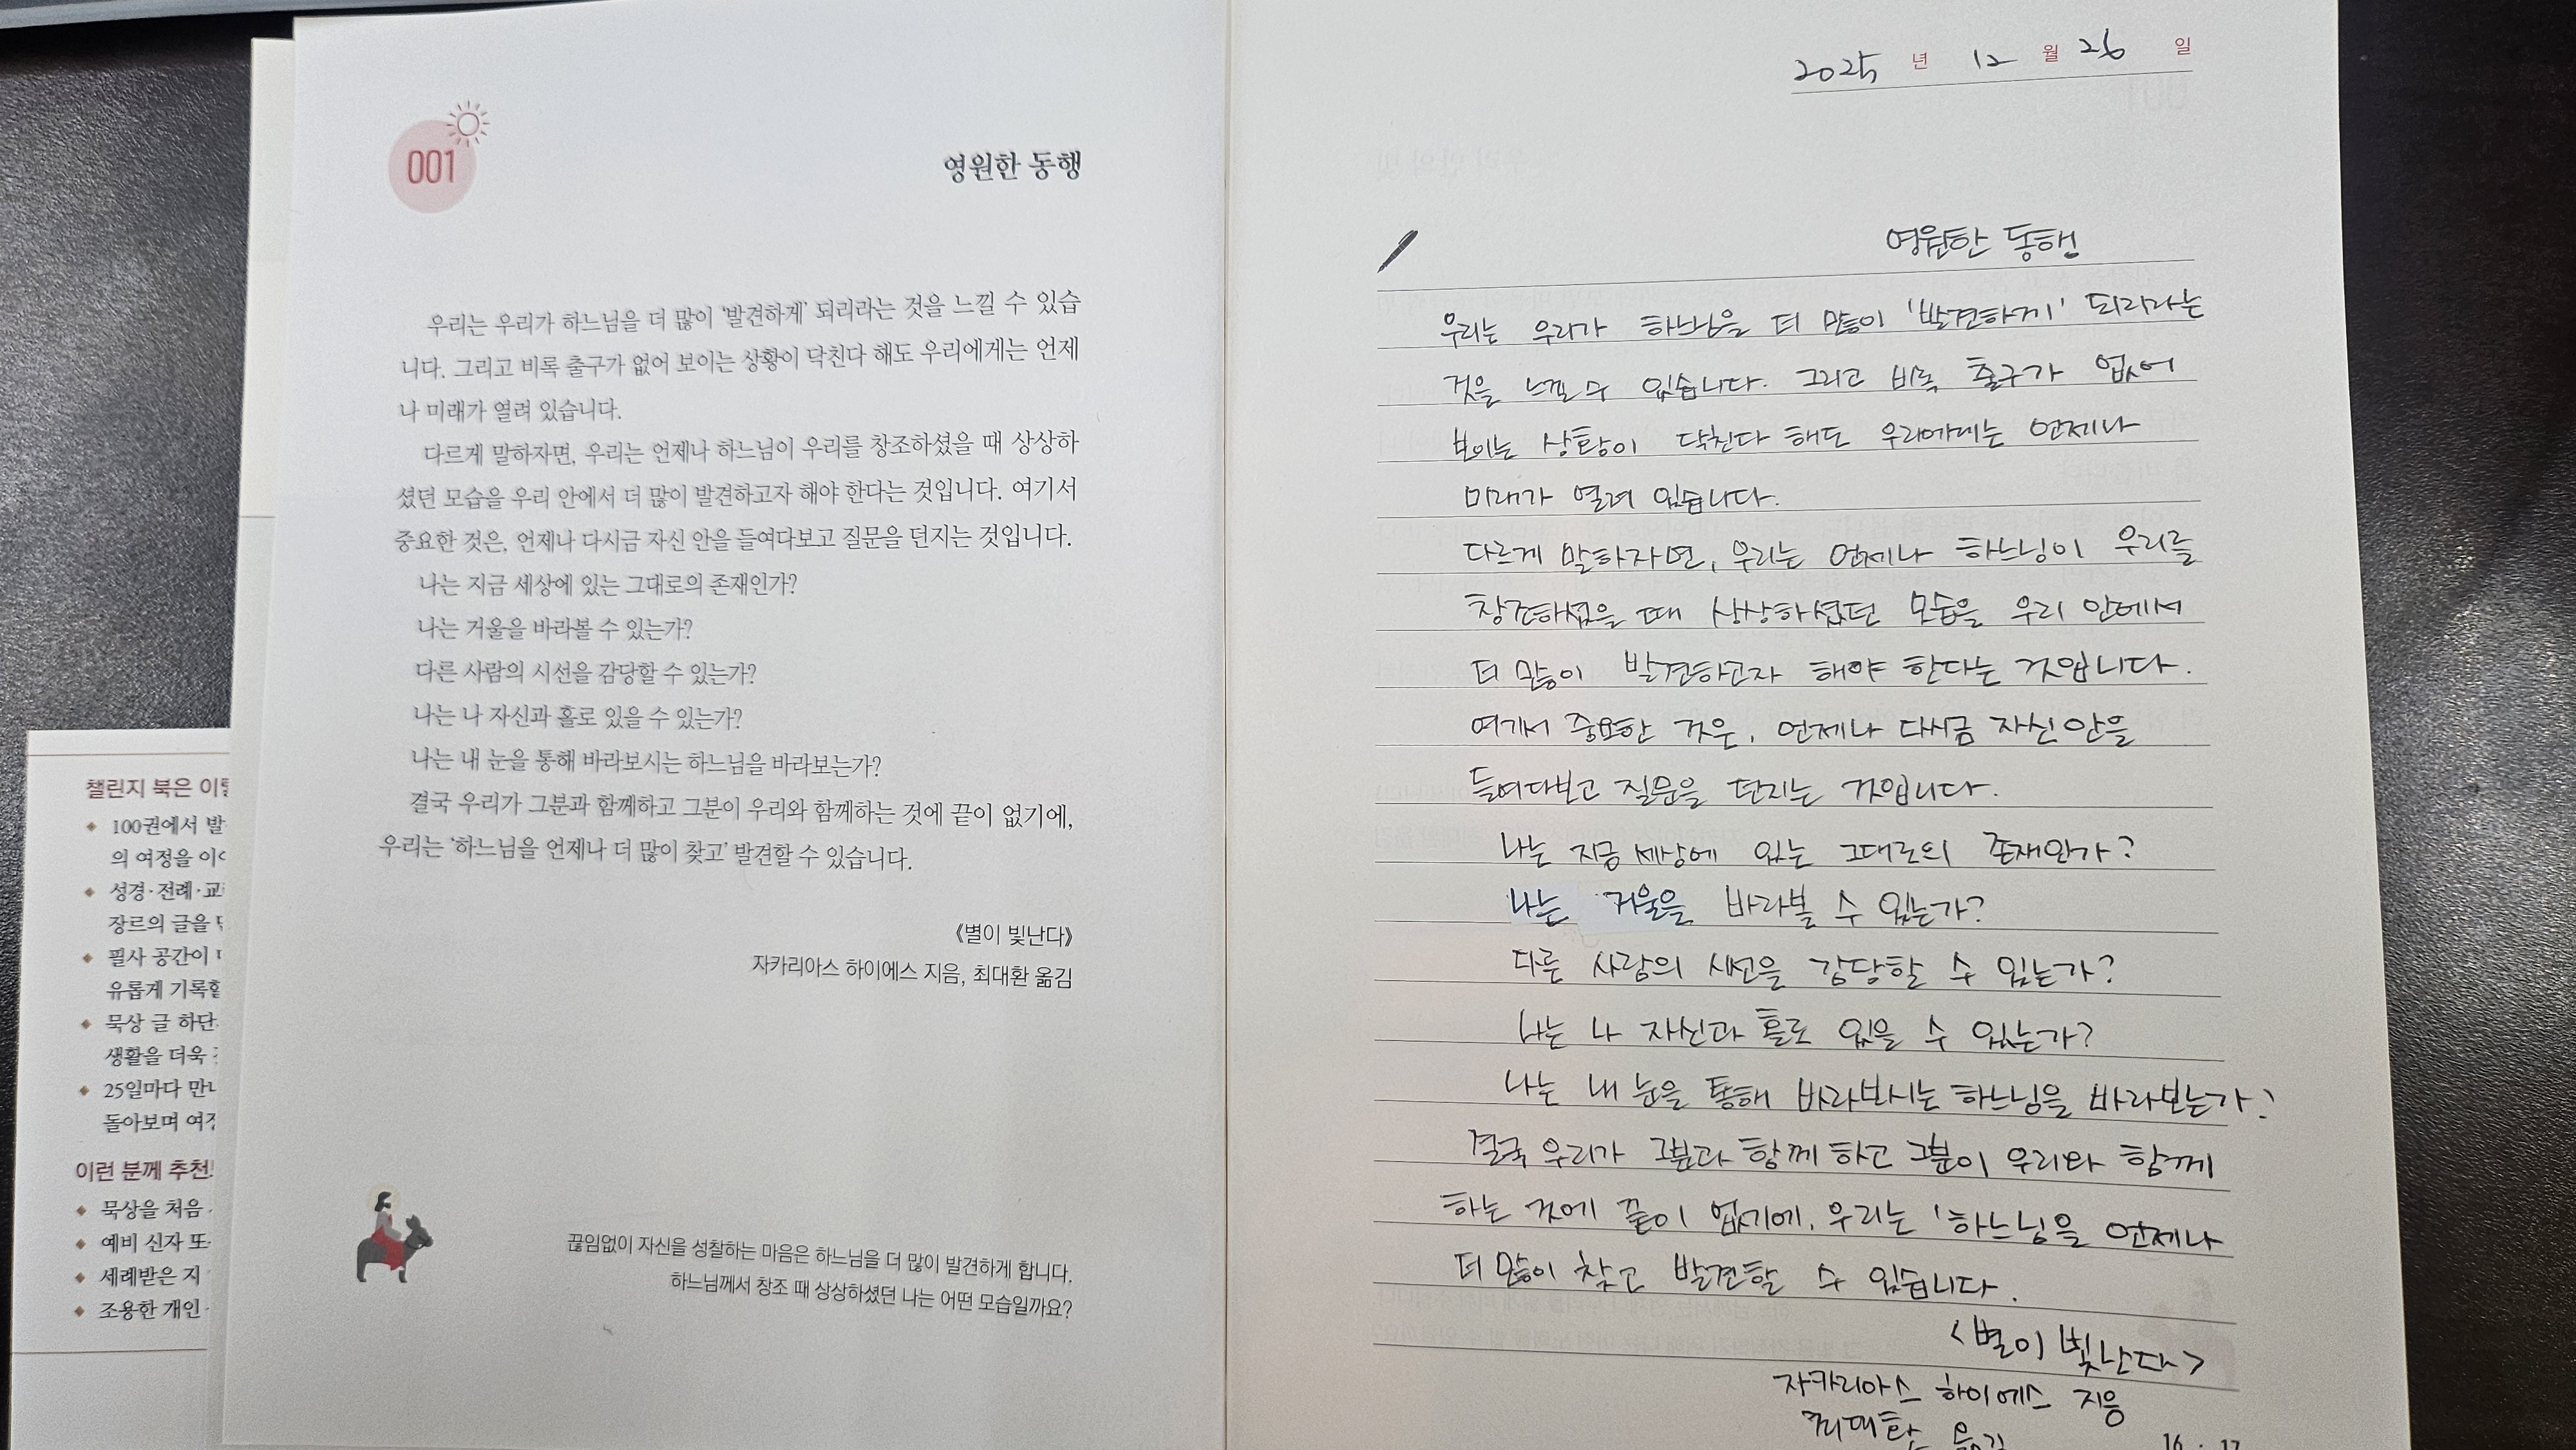 001
영원한 동행
우리는 우리가 하느님을 더 많이 '발견하게' 되리라는 것을 느낄 수 있습
니다. 그리고 비록 출구가 없어 보이는 상황이 닥친다 해도 우리에게는 언제
나 미래가 열려 있습니다.
다르게 말하자면, 우리는 언제나 하느님이 우리를 창조하셨을 때 상상하
셨던 모습을 우리 안에서 더 많이 발견하고자 해야 한다는 것입니다. 여기서
중요한 것은, 언제나 다시금 자신 안을 들여다보고 질문을 던지는 것입니다.
나는 지금 세상에 있는 그대로의 존재인가?
나는 거울을 바라볼 수 있는가?
다른 사람의 시선을 감당할 수 있는가?
나는 나 자신과 홀로 있을 수 있는가?
나는 내 눈을 통해 바라보시는 하느님을 바라보는가?
결국 우리가 그분과 함께하고 그분이 우리와 함께하는 것에 끝이 없기에,
우리는 '하느님을 언제나 더 많이 찾고' 발견할 수 있습니다.
《별이 빛난다》
자카리아스 하이에스 지음, 최대환 옮김
끊임없이 자신을 성찰하는 마음은 하느님을 더 많이 발견하게 합니다.
하느님께서 창조 때 상상하셨던 나는 어떤 모습일까요?
챌린지 북은
100권에서
의 여정을
성경·전례·
장르의 글을
필사 공간이
유롭게
묵상 글
생활을 더욱
25일마다
돌아보며
이런 분께
묵상을 처음
예비 신자
세례받은 지
조용한 개인
2025 년 12 월 26 일
영원한 동행
우리는 우리가 하느님을 더 많이 '발견하게' 되리라는
것을 느낄 수 있습니다. 그리고 비록 출구가 없어
보이는 상황이 닥친다 해도 우리에게는 언제나
미래가 열려 있습니다.
다르게 말하자면, 우리는 언제나 하느님이 우리를
창조하셨을 때 상상하셨던 모습을 우리 안에서
더 많이 발견하고자 해야 한다는 것입니다.
여기서 중요한 것은, 언제나 다시금 자신 안을
들여다보고 질문을 던지는 것입니다.
나는 지금 세상에 있는 그대로의 존재인가?
나는 거울을 바라볼 수 있는가?
다른 사람의 시선을 감당할 수 있는가?
나는 나 자신과 홀로 있을 수 있는가?
나는 내 눈을 통해 바라보시는 하느님을 바라보는가?
결국 우리가 그분과 함께 하고 그분이 우리와 함께
하는 것에 끝이 없기에, 우리는 '하느님을 언제나
더 많이 찾고 발견할 수 있습니다.
<별이 빛난다>
자카리아스 하이에스 지음
최대환 옮김
16 · 17